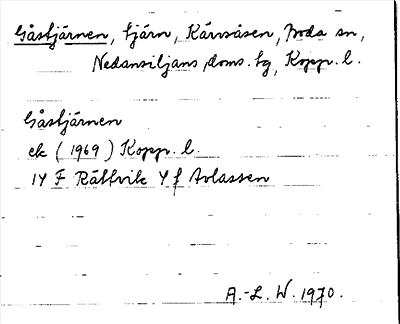 Gåstjärnen, tjärn, Kärvsåsen, Boda sn,
Nedansiljans doms. tg, Kopp. l.
Gåstjärnen
ek (1969) Kopp. l.
14 F Rättvik 4 f Avlassen
A.-L. W. 1970.